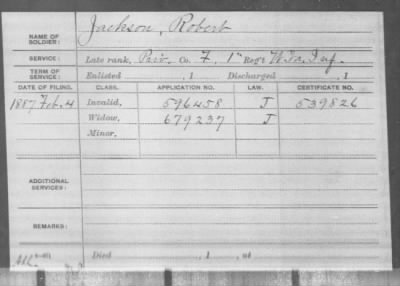 Jackson, Robert
NAME OF SOLDIER:
SERVICE: Late rank, Priv. Co. F, 1" Reg't W.Va. Inf.
TERM OF SERVICE: Enlisted , 1 Discharged , 1
DATE OF FILING. CLASS. APPLICATION NO. LAW. CERTIFICATE NO.
1887 Feb. 4 Invalid, 596458 J 539826
Widow, 679237 J
Minor,
ADDITIONAL SERVICES:
REMARKS:
Died , 1 , at